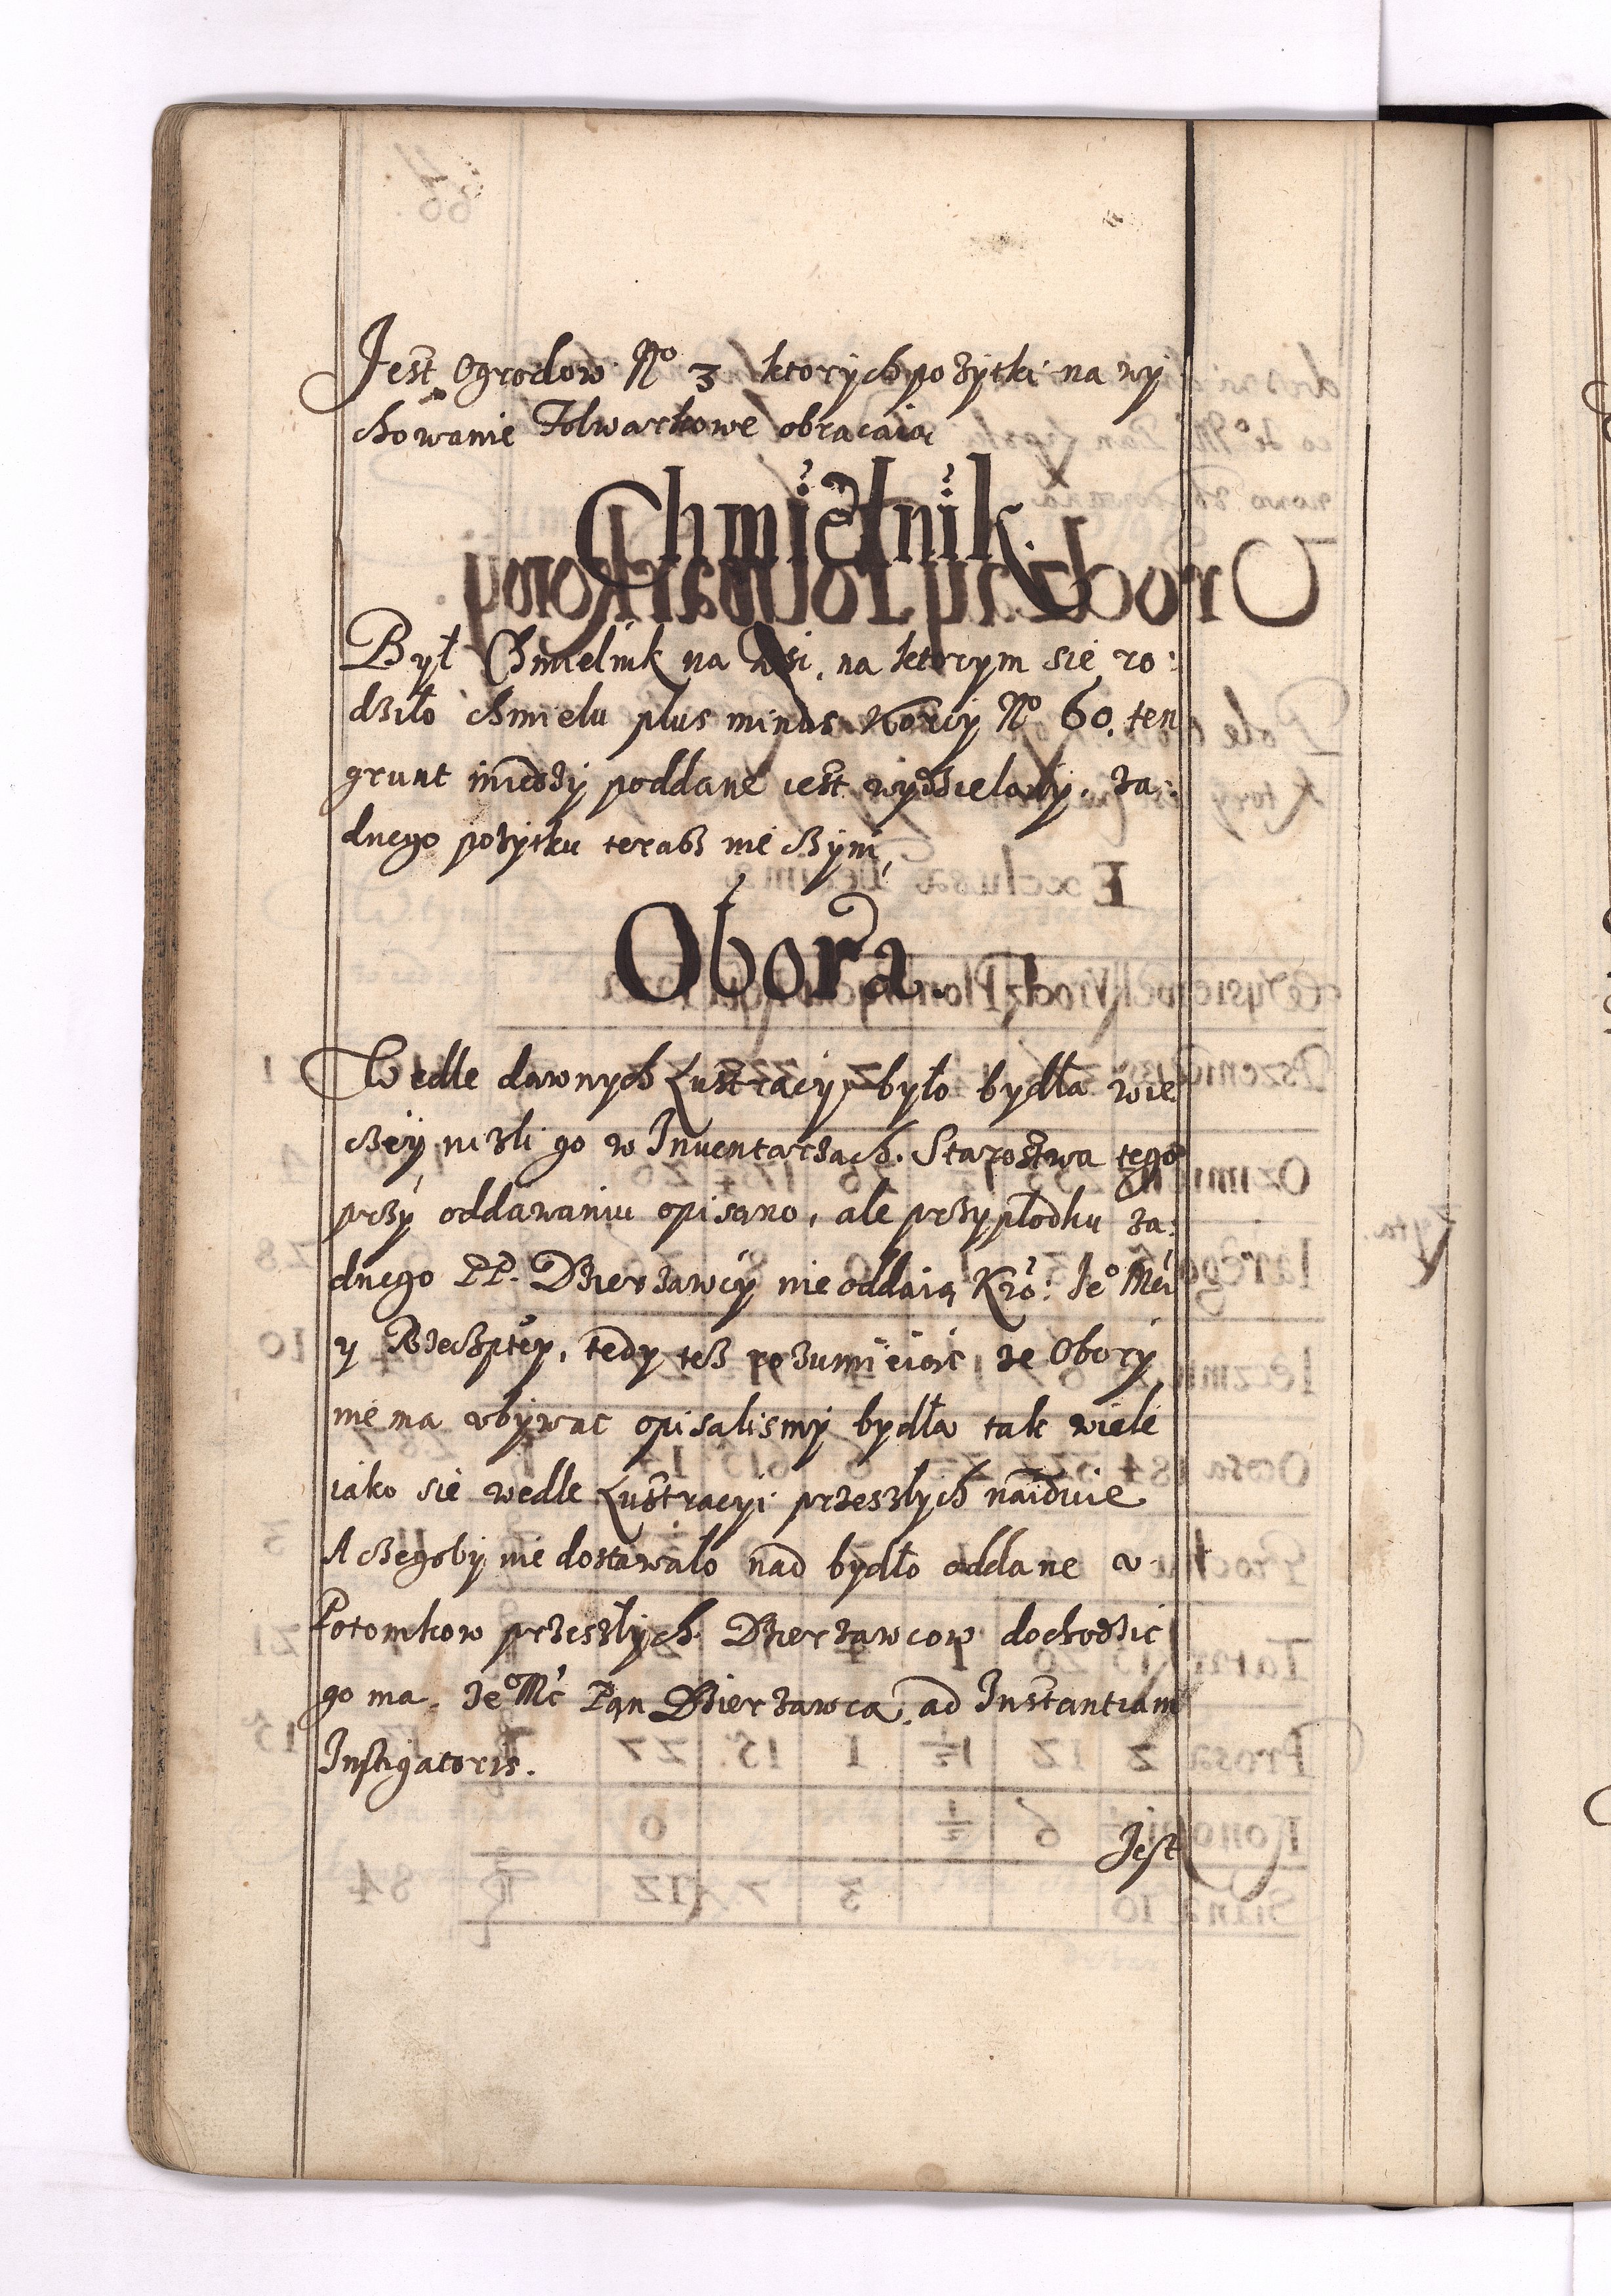 Jest Ogrodow No 3 ktorych pożytki na wy
chowanie Folwarkowe obracaią
Chmielnik.
Był Chmielnik na Wsi, na ktorym się ro:
dziło chmielu plus minus Korcy No 60. ten
grunt między poddane iest wydzielony, ża:
dnego pożytku teraz nie czyni,
Obora.
Wedle dawnych Lustracyi było bydła wie
czey niżli go w Inwentarzach Starostwa tego
przy oddawaniu opisano, ale przypłodku ża:
dnego PP. Dzierżawcy nie oddaią Kro: Jeo Mci
y Rzeczptey, tedy też rozumieiąc że Obory
nie ma ubywac opisalismy bydła tak wiele
iako się wedle Lustracyi przeszłych naiduie
A czegoby nie dostawało nad bydło oddane u
Potomkow przeszłych Dzierżawcow dochodzic
go ma Jeo Mc Pan Dzierżawca ad Instantiam
Instigatoris.
Jest